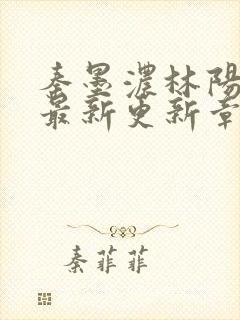 秦墨濃林陽
最新更新章
秦菲菲